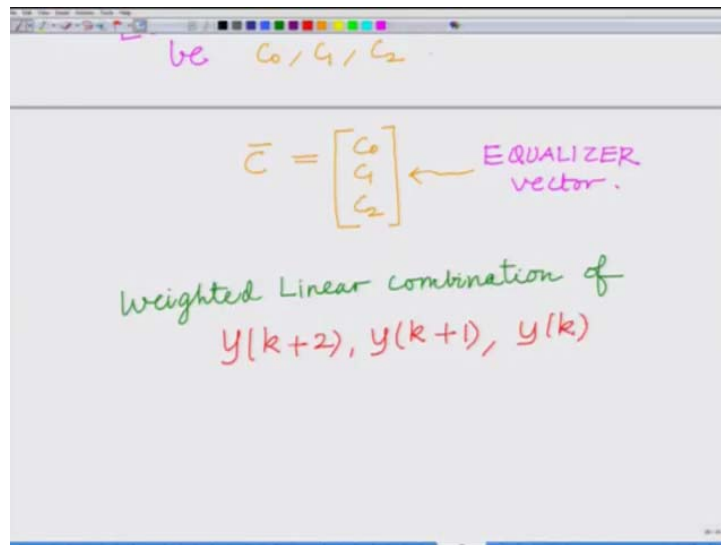 be C₀, C₁, C₂
C̄ = [C₀ C₁ C₂] ← EQUALIZER vector.
Weighted Linear combination of
y(k+2), y(k+1), y(k)